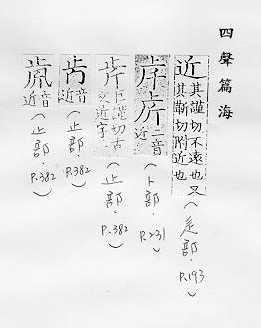 四聲篇海
近 其謹切不遠也又其靳切附近也(辵部.P.193)
二音近(卜部.P.231)
巨謹切古文近字(止部.P.382)
音近(止部.P.382)
音近(止部.P.382)